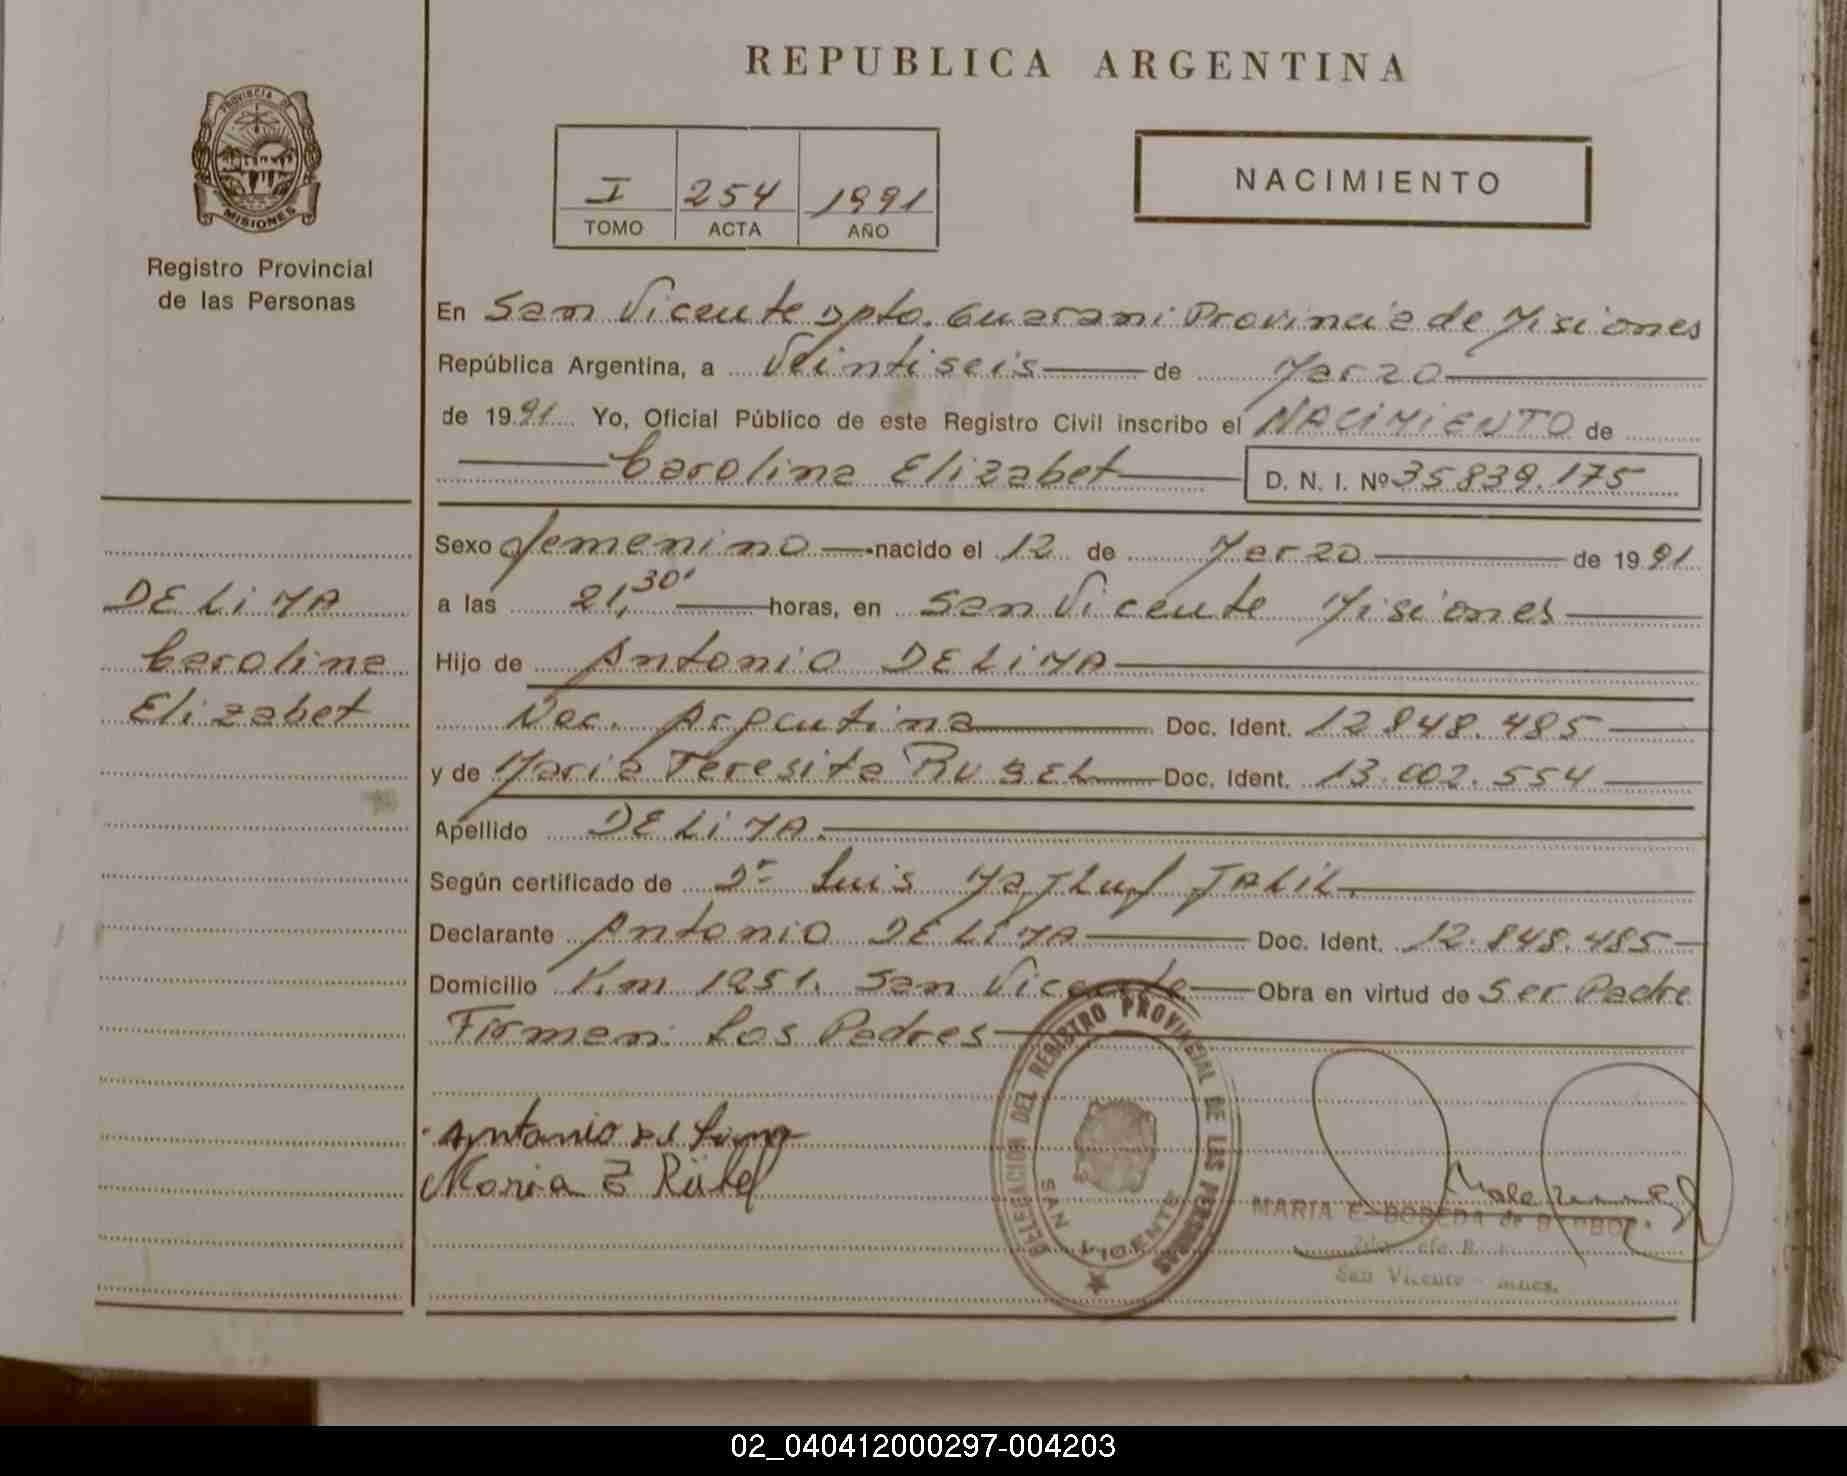 REPUBLICA ARGENTINA
PROVINCIA DE
MISIONES
Registro Provincial
de las Personas
I 254 1991
TOMO ACTA AÑO
NACIMIENTO
En San Vicente Dpto. Guarani Provincia de Misiones
República Argentina, a Veintiseis de Marzo
de 1991 Yo, Oficial Público de este Registro Civil inscribo el NACIMIENTO de
Carolina Elizabet D. N. I. Nº 35.839.175
Sexo femenino nacido el 12 de Marzo de 1991
a las 21,30' horas, en San Vicente Misiones
Hijo de Antonio DE LIMA
Nac. Argentina Doc. Ident. 12.848.485
y de Maria Teresita Doc. Ident. 13.002.554
Apellido DE LIMA.
Según certificado de Dr Luis JALIL.
Declarante Antonio DE LIMA Doc. Ident. 12.848.485
Domicilio Km 1251. San Vicente Obra en virtud de Ser Padre
Firman: Los Padres
DE LIMA
Carolina
Elizabet
Antonio de Lima
Maria
DELEGACION DEL REGISTRO PROVINCIAL DE LAS PERSONAS
SAN VICENTE
MARIA E. BOBEDA de
San Vicente - Mnes.
02_040412000297-004203